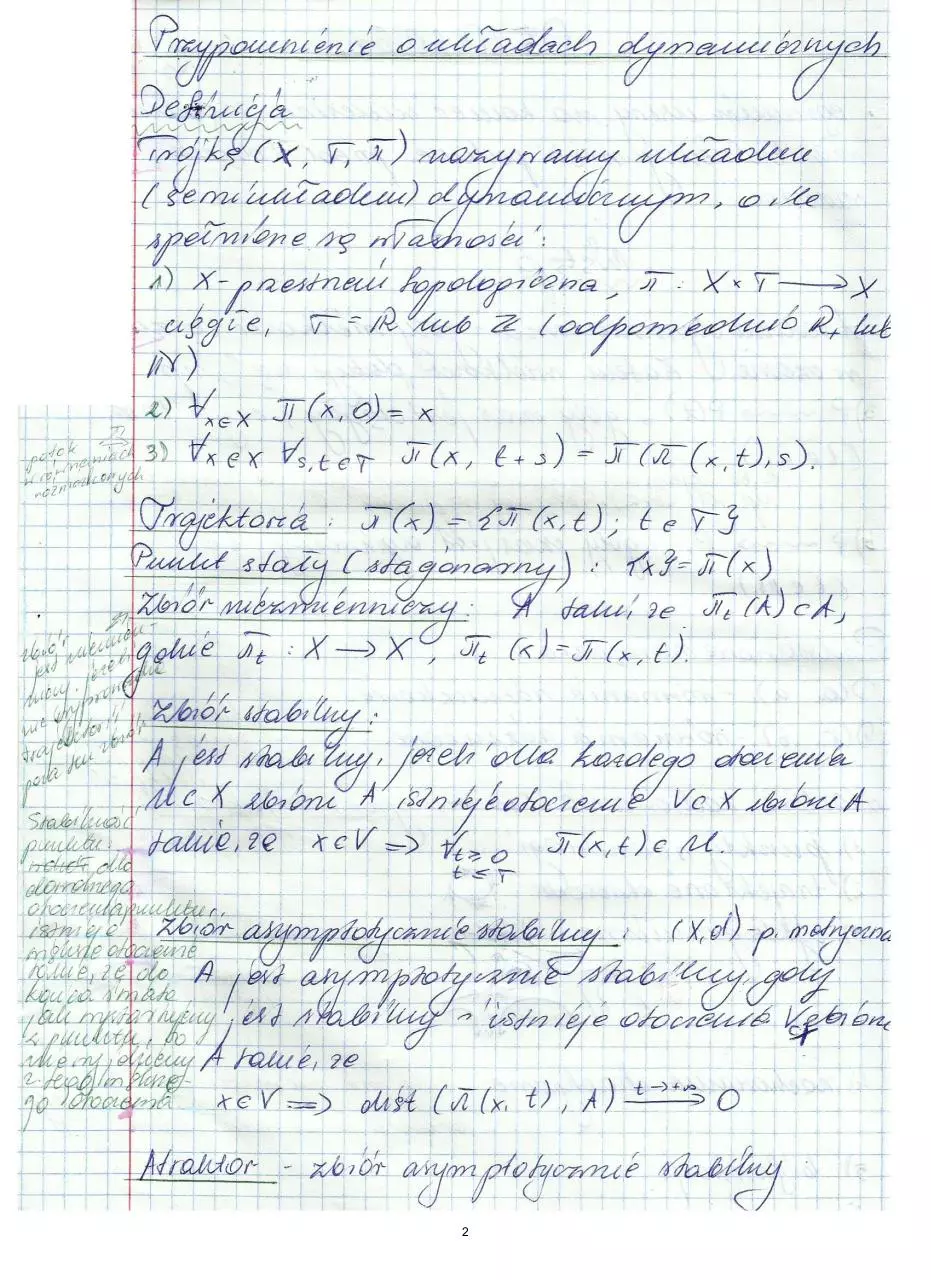 Przypomnienie o układach dynamicznych
Definicja
Trójkę (X, T, π) nazywamy układem
(semiukładem) dynamicznym, o ile
spełnione są własności:
1) X - przestrzeń topologiczna, π : X × T ⟶ X
ciągłe, T = ℝ lub ℤ (odpowiednio ℝ₊ lub
ℕ)
2) ∀x∈X π(x, 0) = x
3) ∀x∈X ∀s,t∈T π(x, t+s) = π(π(x,t),s).
potok
w równaniach
różniczkowych
Trajektoria: π(x) = {π(x,t); t ∈ T}
Punkt stały (stacjonarny): {x} = π(x)
Zbiór niezmienniczy: A takie, że πt(A) ⊂ A,
gdzie πt : X ⟶ X, πt(x) = π(x,t).
zbiór
jest niezmien-
niczy, jeżeli
nie wyprowadza
trajektorii
poza ten zbiór
Zbiór stabilny:
A jest stabilny, jeżeli dla każdego otoczenia
U ⊂ X zbioru A istnieje otoczenie V ⊂ X zbioru A
takie, że x ∈ V ⟹ ∀t≥0 π(x,t) ∈ U.
t ≤ T
Stabilność
punktu:
dla
dowolnego
otoczenia punktu
istnieje
mniejsze otoczenie
takie, że do
końca świata
jak wystartujemy
z punktu, to
nie wyjdziemy
z tego
otoczenia
Zbiór asymptotycznie stabilny: (X,d) - p. metryczna
A jest asymptotycznie stabilny, gdy
jest stabilny i istnieje otoczenie V zbioru
A takie, że
x ∈ V ⟹ dist (π(x,t), A) ⟶ 0
t→+∞
Atraktor - zbiór asymptotycznie stabilny
2